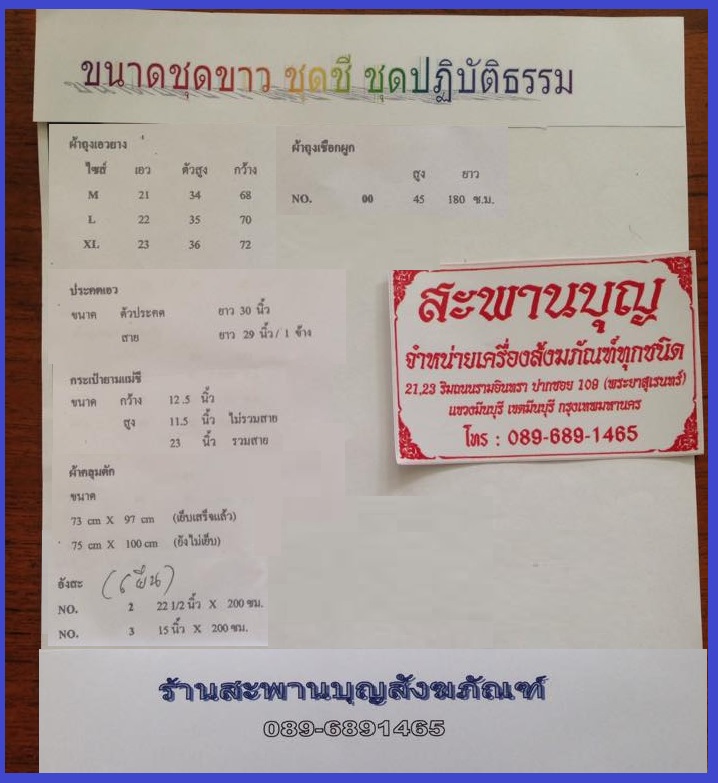 ขนาดชุดขาว ชุดชี ชุดปฏิบัติธรรม
ผ้าถุงเอวยาง
ไซส์ เอว ตัวสูง กว้าง
M 21 34 68
L 22 35 70
XL 23 36 72
ผ้าถุงเชือกผูก
สูง ยาว
NO. 00 45 180 ซ.ม.
ประคดเอว
ขนาด ตัวประคด ยาว 30 นิ้ว
สาย ยาว 29 นิ้ว/ 1 ข้าง
กระเป๋ายามแม่ชี
ขนาด กว้าง 12.5 นิ้ว
สูง 11.5 นิ้ว ไม่รวมสาย
23 นิ้ว รวมสาย
ผ้าคลุมตัก
ขนาด
73 cm X 97 cm (เย็บเสร็จแล้ว)
75 cm X 100 cm (ยังไม่เย็บ)
อังสะ
NO. 2 22 1/2 นิ้ว X 200 ซม.
NO. 3 15 นิ้ว X 200 ซม.
สะพานบุญ
จำหน่ายเครื่องสังฆภัณฑ์ทุกชนิด
21,23 ริมถนนรามอินทรา ปากซอย 109 (พระยาสุเรนทร์)
แขวงมีนบุรี เขตมีนบุรี กรุงเทพมหานคร
โทร : 089-689-1465
ร้านสะพานบุญสังฆภัณฑ์
089-6891465